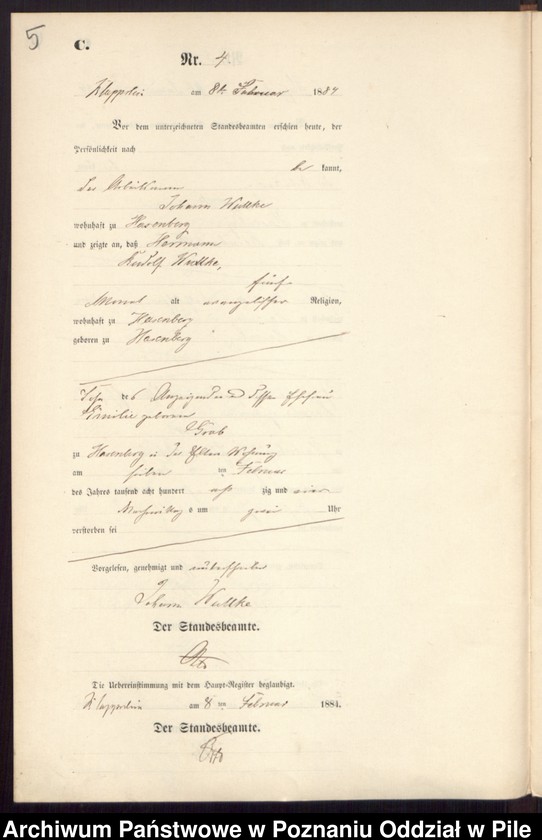 5
C.
Nr. 4.
am 8ten Februar 1884
Vor dem unterzeichneten Standesbeamten erschien heute, der
Persönlichkeit nach
be kannt,
der Arbeitsmann
Johann Wuttke
wohnhaft zu Hasenberg
und zeigte an, daß Hermann
Rudolf Wuttke,
fünf
Monat alt evangelischer Religion,
wohnhaft zu Hasenberg
geboren zu Hasenberg
Sohn des Anzeigenden und dessen Ehefrau
Emilie geborene
zu Hasenberg in der Eltern Wohnung
am sieben ten Februar
des Jahres tausend acht hundert acht zig und vier
Nachmittags um zwei Uhr
verstorben sei
Vorgelesen, genehmigt und unterschrieben
Johann Wuttke
Der Standesbeamte.
Otto
Die Uebereinstimmung mit dem Haupt-Register beglaubigt.
am 8 ten Februar 1884.
Der Standesbeamte.
Otto
Archiwum Państwowe w Poznaniu Oddział w Pile